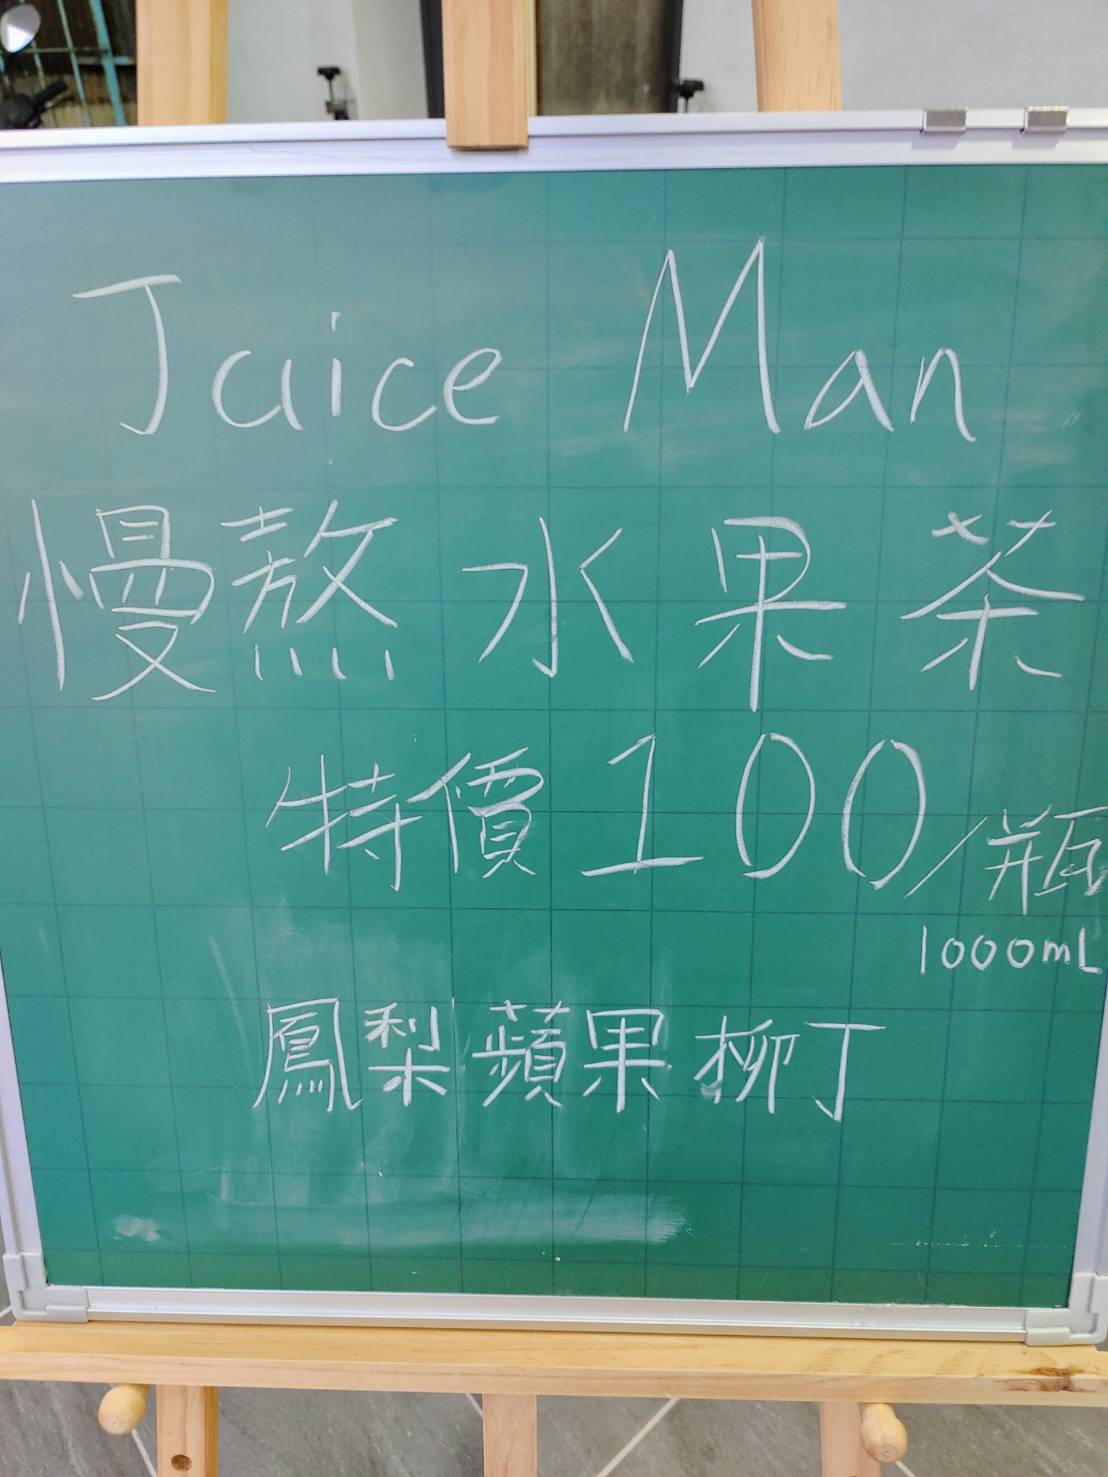 Juice Man
慢熬水果茶
特價100/瓶
1000mL
鳳梨蘋果柳丁